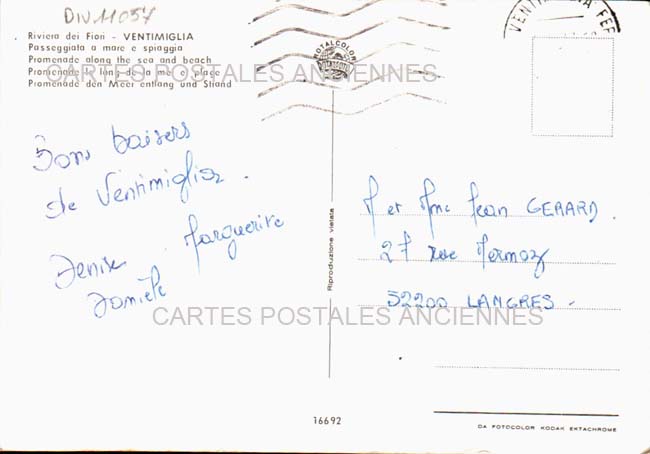 DIV11057
Riviera dei Fiori - VENTIMIGLIA
Passeggiata a mare e spiaggia
Promenade along the sea and beach
Promenade le long de la mer et place
Promenade den Meer entlang und Strand
CARTES POSTALES ANCIENNES
ROTALCOLOR
VENTIMIGLIA FER
Bons baisers
de Ventimiglia.
Marguerite
Denise
Danièle
Riproduzione vietata
M et Mme Jean GERARD.
27 rue Mermoz
52200 LANGRES.
CARTES POSTALES ANCIENNES
16692
DA FOTOCOLOR KODAK EKTACHROME